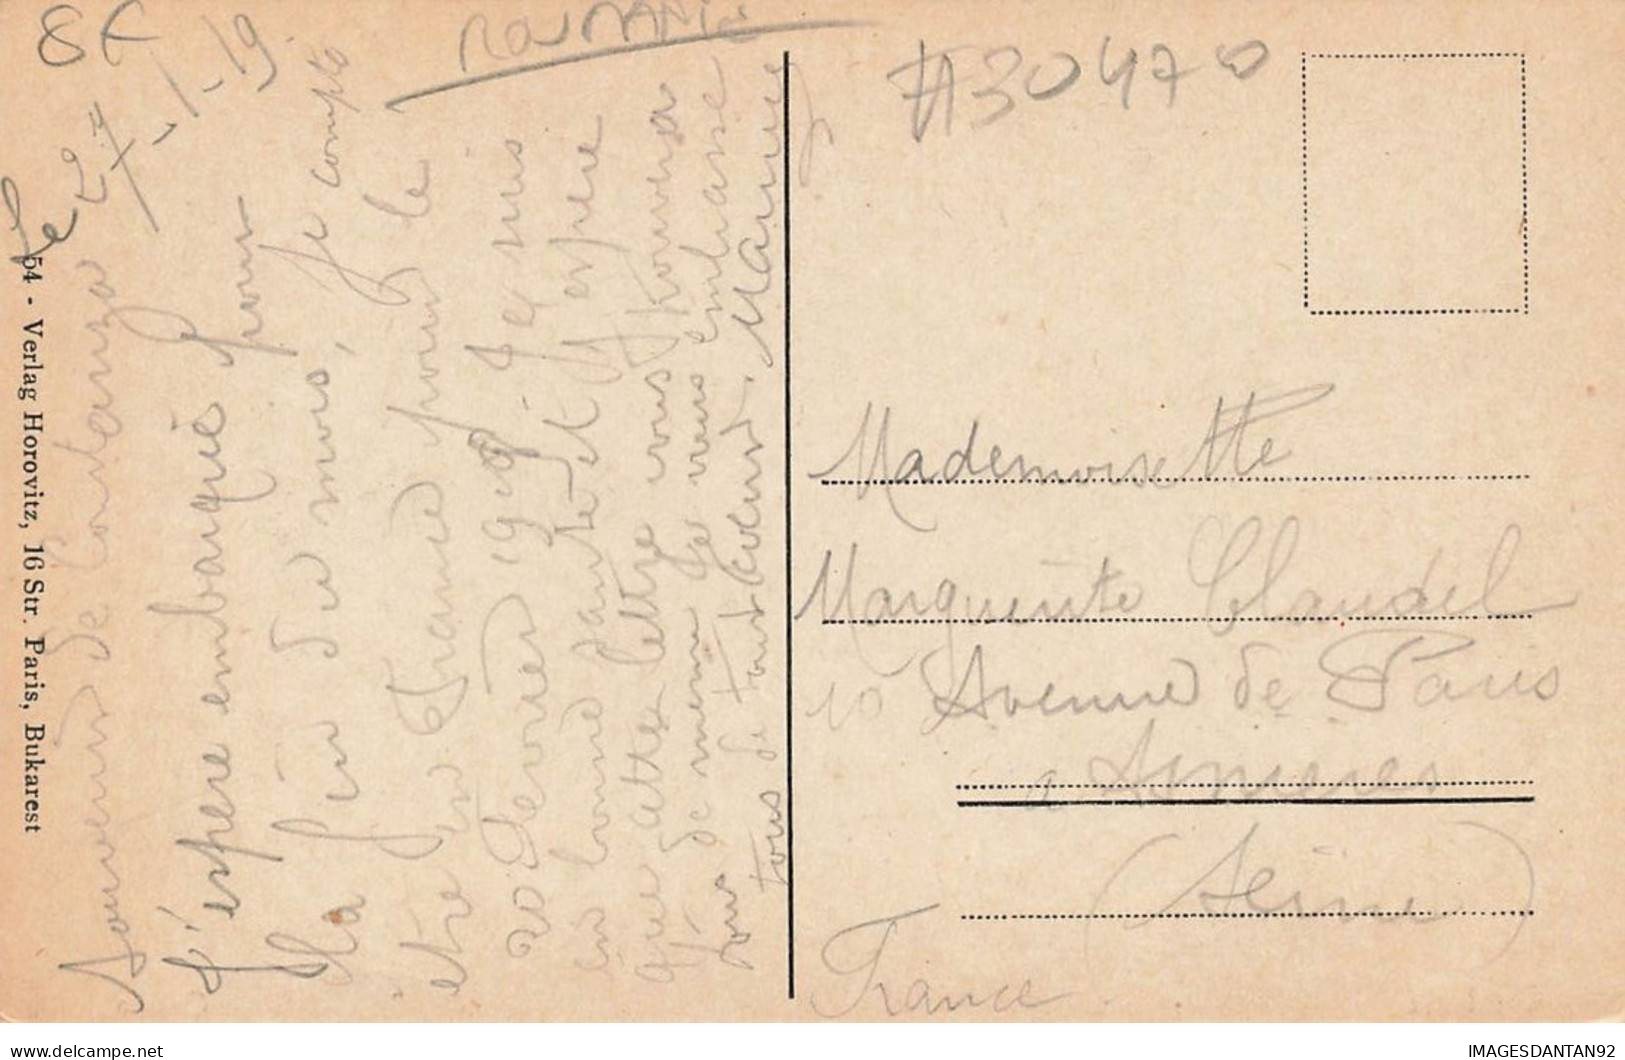 8€
ROUMANIE
#30470
Souvenir de Constanza le 27-1-19
J'espère embarqué pour
la fin du mois, je compte
etre en France pour le
20 Fevrier 1919 Je suis
en bonne santé et j'espère
que cette lettre vous trouvera
de meme Je vous embrasse
tous de tout coeur. Maurice
Mademoiselle
Marguerite Claudel
10 Avenue de Paris
a Asnieres
(Seine)
France
54 - Verlag Horovitz, 16 Str. Paris, Bukarest
IMAGESDANTAN92
delcampe.net